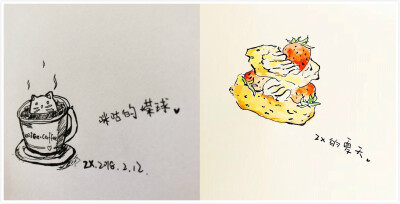 咪咕的煤球
ZX.2018.2.12.
ZX的夏天